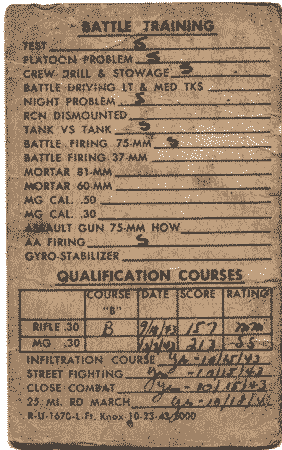 BATTLE TRAINING
TEST S
PLATOON PROBLEM S
CREW DRILL & STOWAGE S
BATTLE DRIVING LT & MED TKS
NIGHT PROBLEM S
RCN DISMOUNTED
TANK VS TANK S
BATTLE FIRING 75-MM S
BATTLE FIRING 37-MM
MORTAR 81-MM
MORTAR 60-MM
MG CAL. .50
MG CAL. .30
ASSAULT GUN 75-MM HOW
AA FIRING S
GYRO-STABILIZER
QUALIFICATION COURSES
COURSE DATE SCORE RATING
"B"
RIFLE .30 B 157
MG .30 212
INFILTRATION COURSE Yes - 10/15/43
STREET FIGHTING Yes - 10/15/43
CLOSE COMBAT Yes - 10/15/43
25 MI. RD MARCH Yes - 10/18/43
R-U-1670-L-Ft. Knox-10-23-43-5000